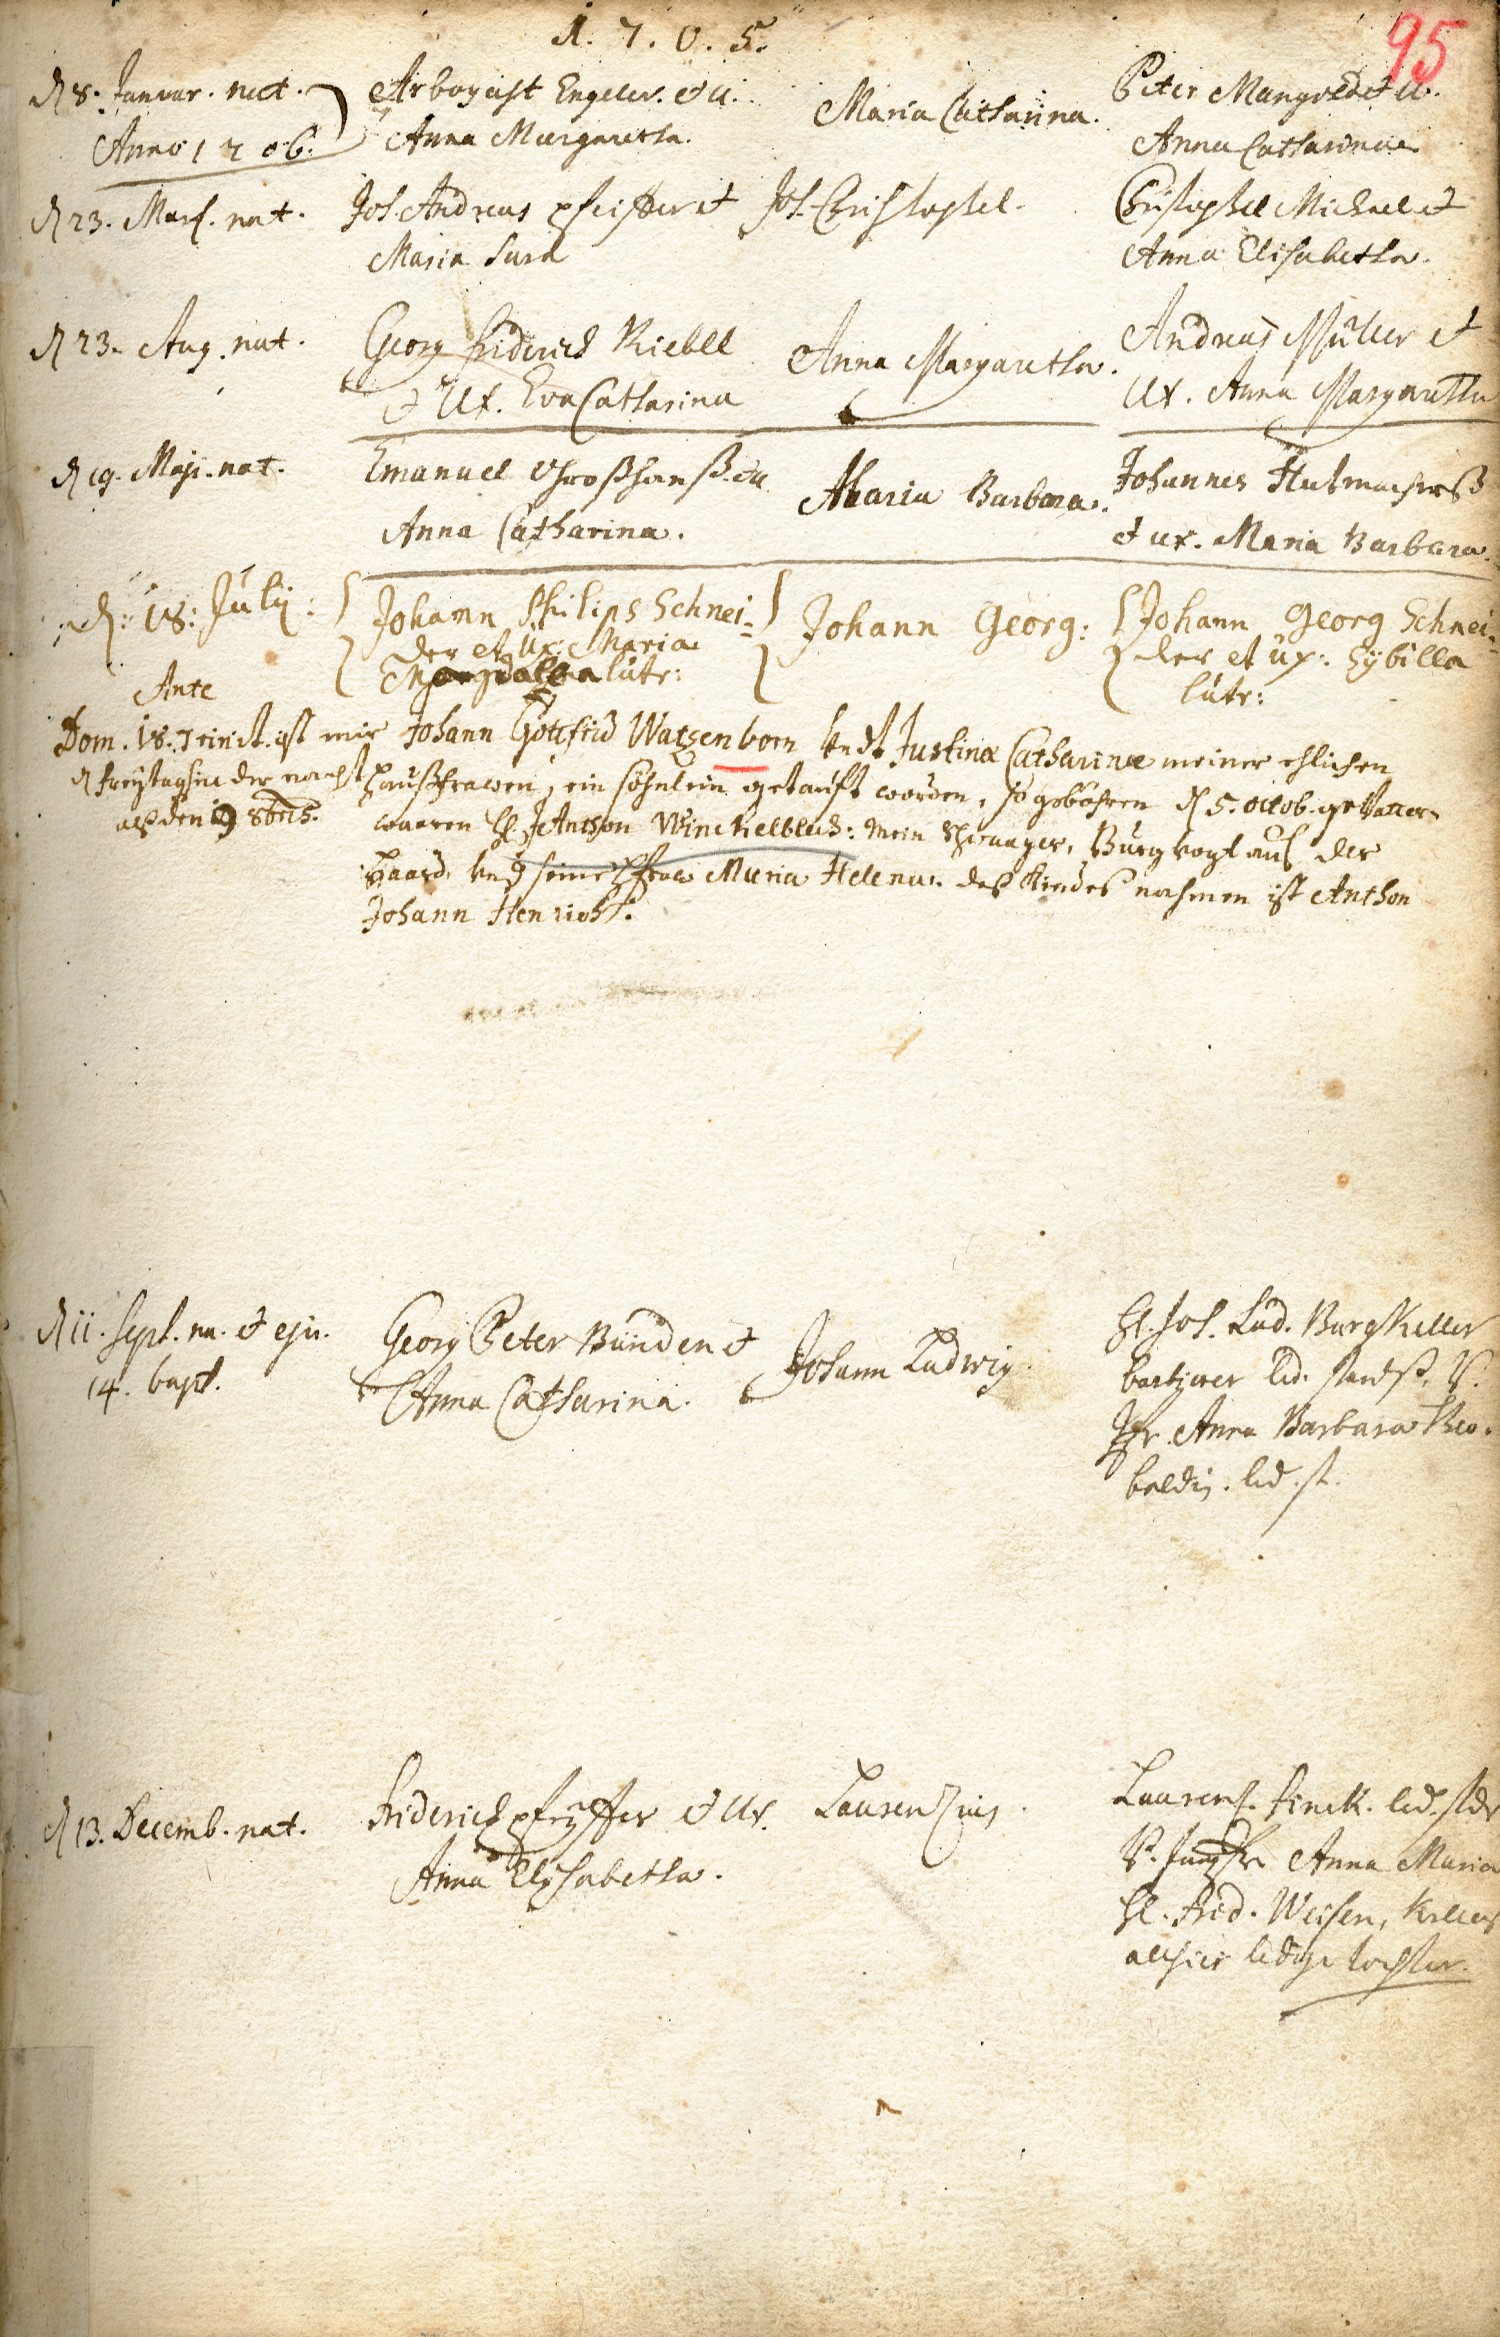 1. 7. 0. 5.
95
d 8. Januar. nat.
Anno 1706.
Arbogast Engeler. et u.
Anna Margaretha.
Maria Catharina.
Peter Mangold et u.
Anna Catharina.
d 23. Mart. nat.
Joh. Andreas Pfeiffer et
Maria Sara
Joh. Christophel.
Christophel Michael et
Anna Elisabetha.
d 23. Aug. nat.
Georg Friderich Riebell
et Ux. Eva Catharina
Anna Margaretha.
Andreas Müller et
Ux. Anna Margaretha
d 19. Maji. nat.
Emanuel Großhanß. et u.
Anna Catharina.
Maria Barbara.
Johannes
et ux. Maria Barbara.
d: 18: Julij:
Johann Philips Schnei=
der et üx: Maria
Magdalena lütr:
Johann Georg:
Johann Georg Schnei=
der et üx: Sybilla
lütr:
Ante
Dom. 18. Trinit. ist mir Johann Gottfrid Watzenborn undt Justinæ Catharinæ meiner ehlichen
d freytags in der nacht haußfrawen, ein söhnlein getauft worden, so gebohren d 5. octob. gevatter=
alß den 9 8bris. waaren H. Anthon Winckelblech: mein Schwager, Burgvogt auf der
Haard, und seine Fraw Maria Helena. deß Kindes nahmen ist Anthon
Johann Henrich.
d 11. Sept. na. et eju.
14. bapt.
Georg Peter Bünden et
Anna Catharina.
Johann Ludwig.
H. Joh. Lud. Burgkeller
lid. standß, V.
Jfr. Anna Barbara Theo=
baldin. led. st.
d 13. Decemb. nat.
Friderich Pfeyffer et Ux.
Anna Elisabetha.
Laurentius.
Laurent. Finck. led. stds
V. Jungfr. Anna Maria
H. Frid. Weisen, Kellers
alhier ledige tochter.